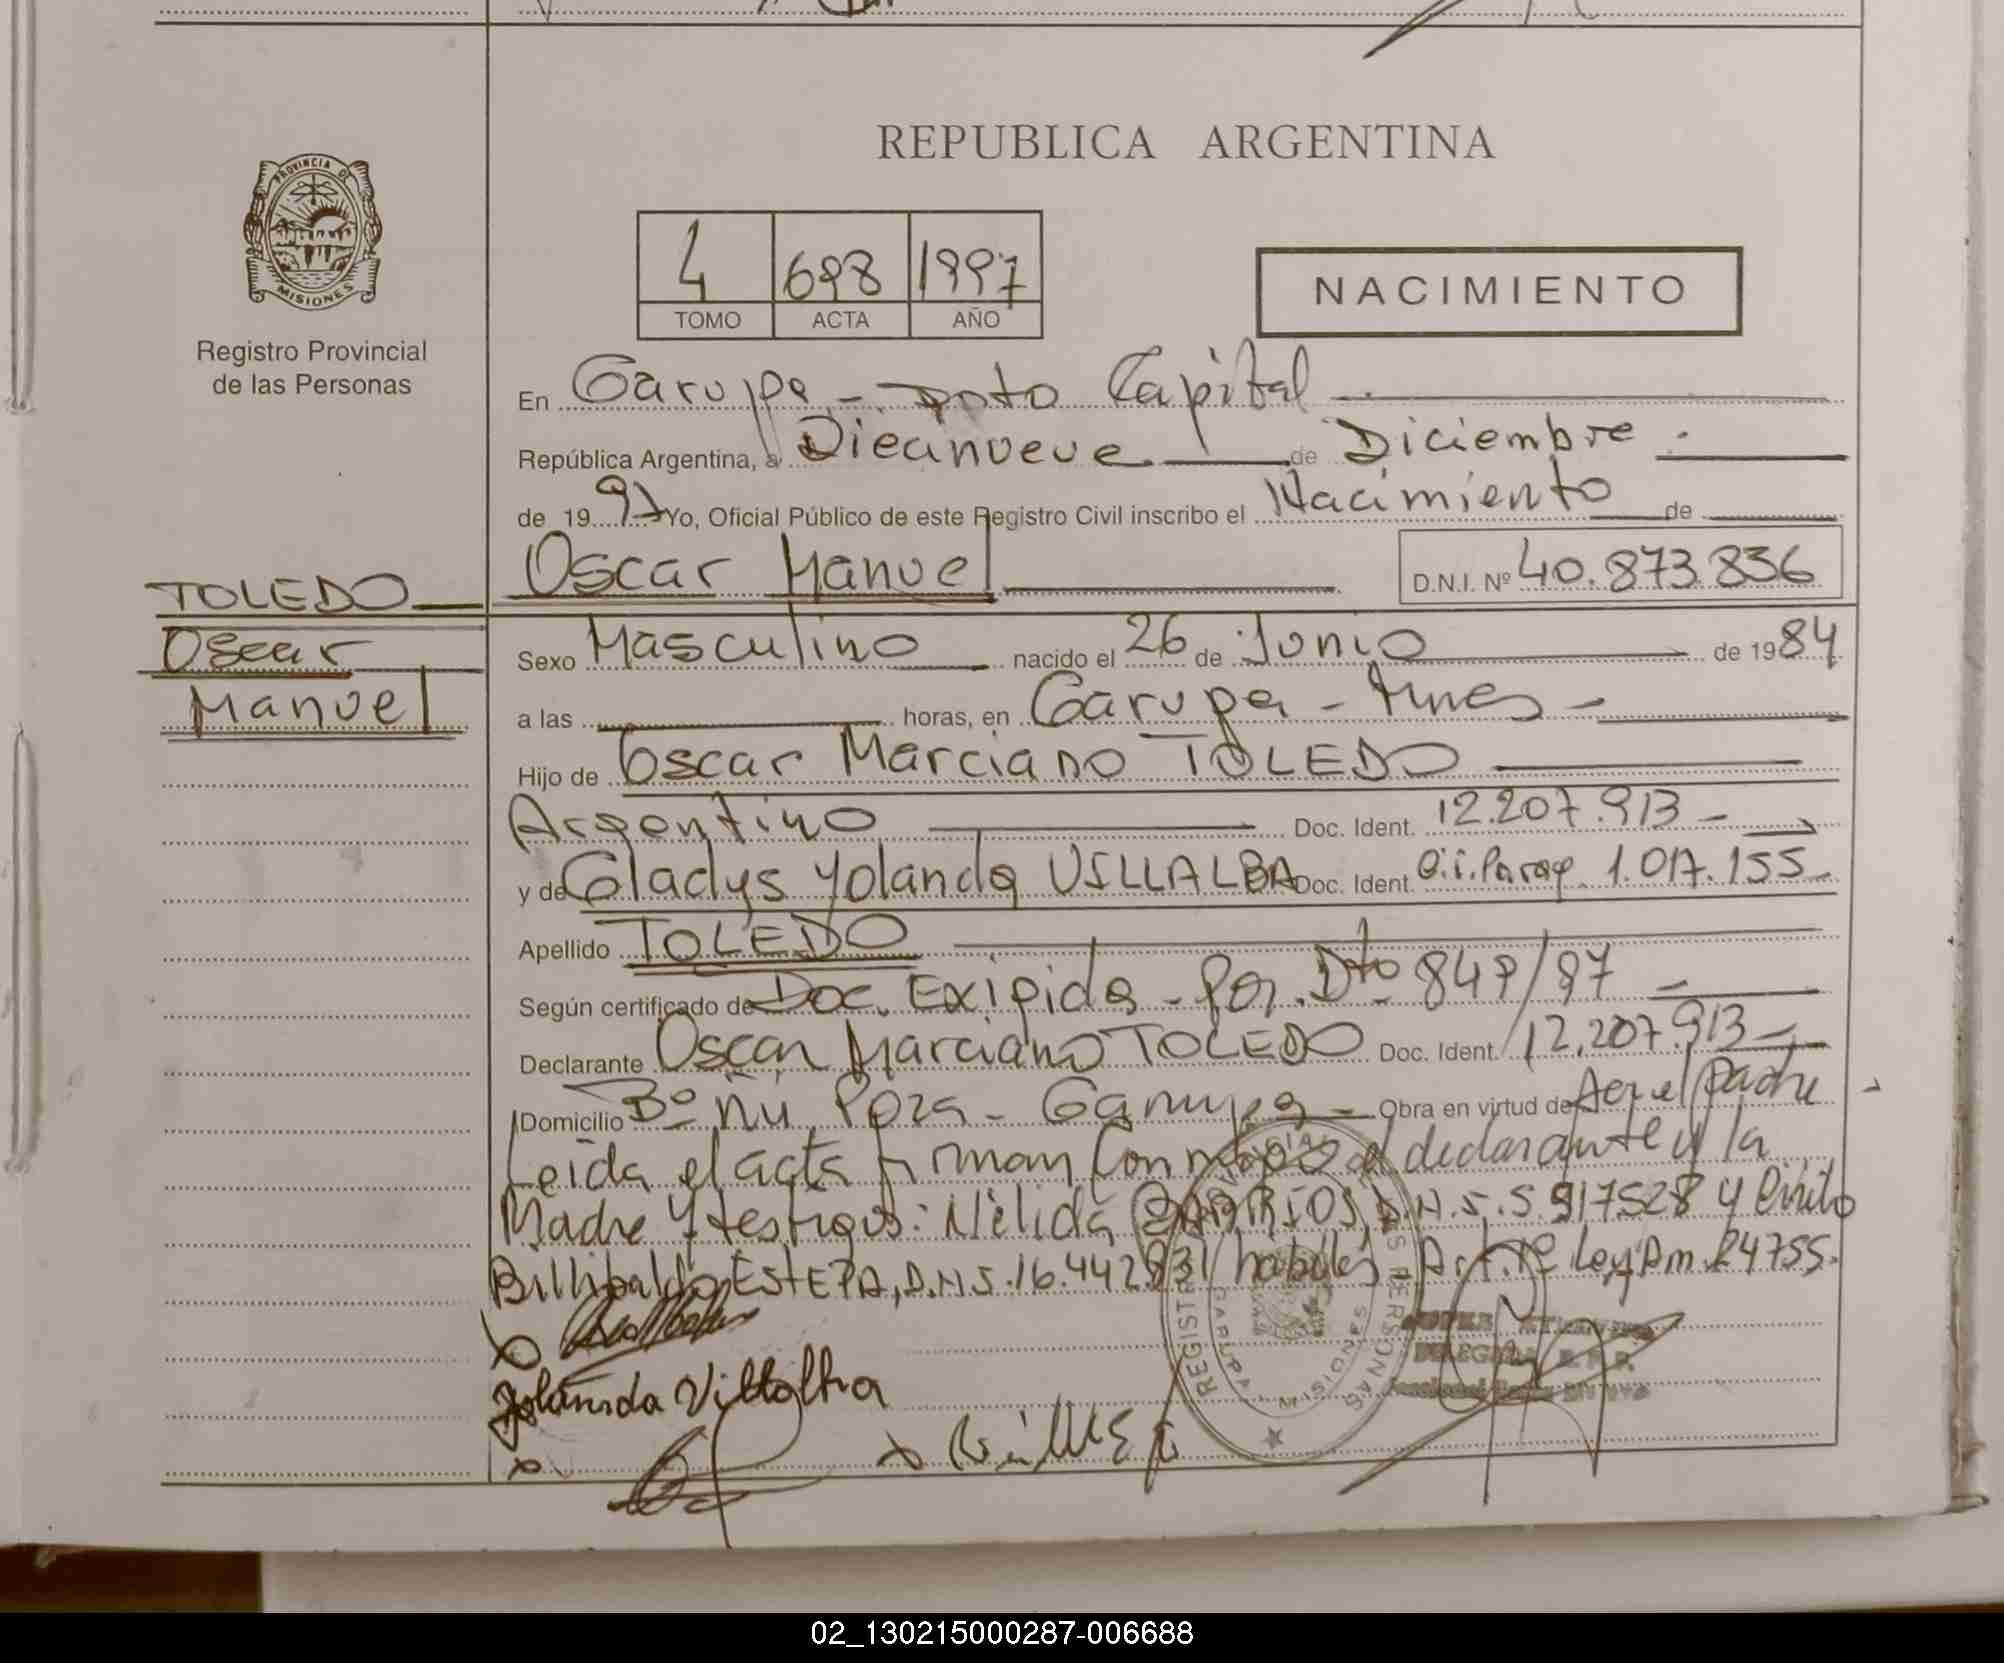 PROVINCIA DE
MISIONES
Registro Provincial
de las Personas
REPUBLICA ARGENTINA
4 698 1997
TOMO ACTA AÑO
NACIMIENTO
En Garupa - Dpto Capital
República Argentina, a Diecinueve de Diciembre
de 1997 Yo, Oficial Público de este Registro Civil inscribo el Nacimiento de
Oscar Manuel D.N.I. Nº 40.873.836
TOLEDO
Oscar
Manuel
Sexo Masculino nacido el 26 de Junio de 1984
a las horas, en Garupa - Mnes -
Hijo de Oscar Marciano TOLEDO
Argentino Doc. Ident. 12.207.913 -
y de Gladys Yolanda VILLALBA Doc. Ident. C.i. Parag. 1.017.155 -
Apellido TOLEDO
Según certificado de Doc. Exigida - Por Dto 849/97 -
Declarante Oscar Marciano TOLEDO Doc. Ident. 12.207.913 -
Domicilio Bº Ñu Pora - Garupa - Obra en virtud de Ser el Padre -
Leida el acta firman Conmigo el declarante y la
Madre y testigos: Nélida BARRIOS, D.N.I. 5.917.528 y Cirilo
Billibaldo ESTEPA, D.N.I. 16.442.931 habiles Art. 1º Ley Am. 24755.
Yolanda Villalba
REGISTRO PROVINCIAL DE LAS PERSONAS
GARUPA - MISIONES
02_130215000287-006688